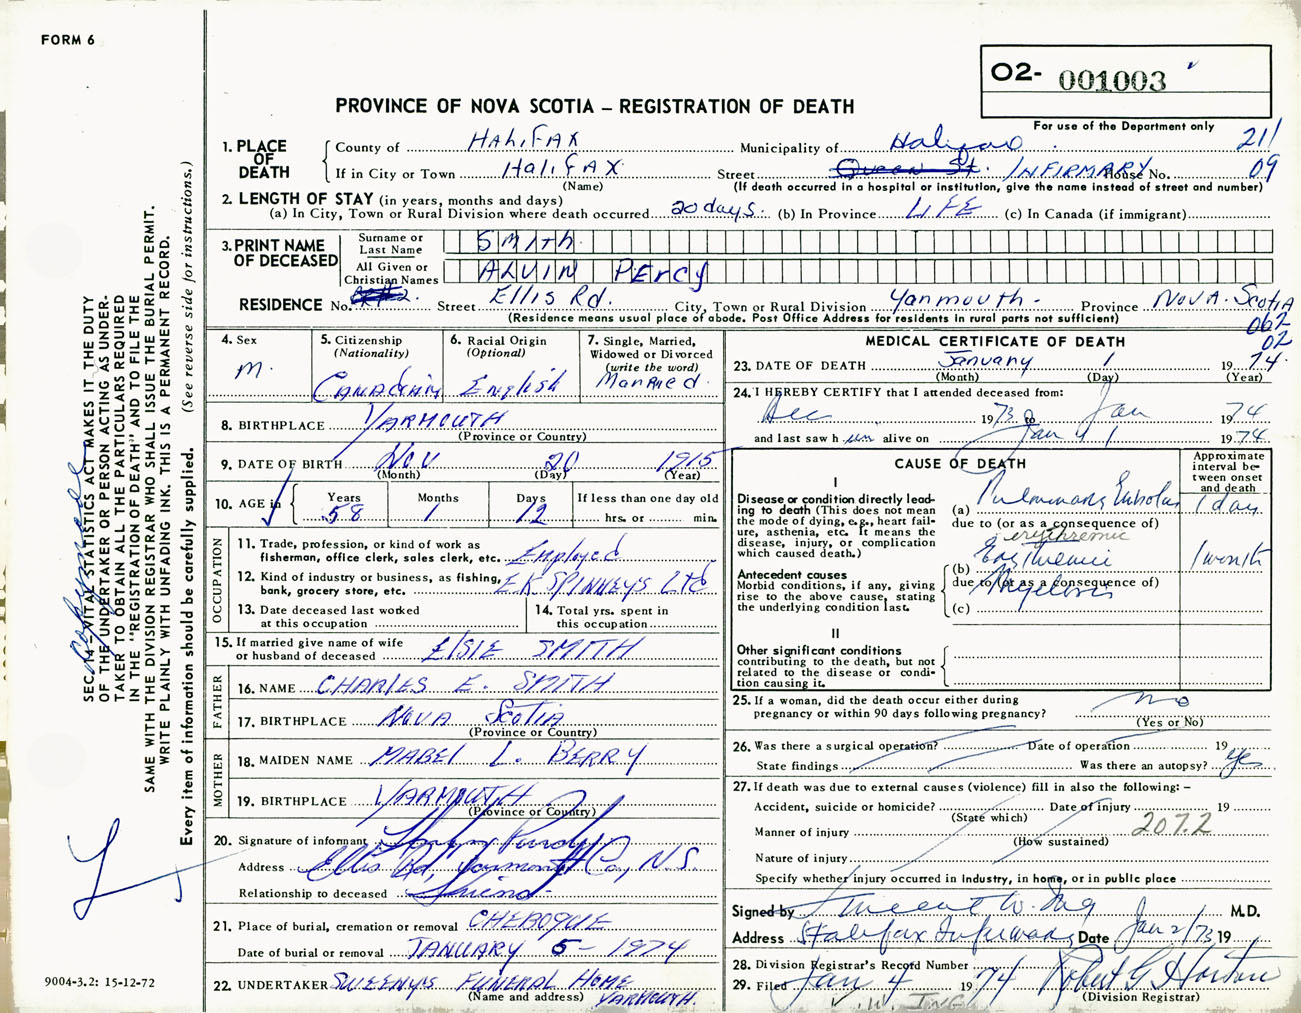 FORM 6
O2- 001003
PROVINCE OF NOVA SCOTIA – REGISTRATION OF DEATH
For use of the Department only
211
09
1. PLACE OF DEATH
County of HALIFAX Municipality of Halifax
If in City or Town HaliFAX Street Queen St. INFIRMARY House No.
(Name) (If death occurred in a hospital or institution, give the name instead of street and number)
2. LENGTH OF STAY (in years, months and days)
(a) In City, Town or Rural Division where death occurred 20 days. (b) In Province LIFE (c) In Canada (if immigrant)
3. PRINT NAME OF DECEASED
Surname or Last Name SMITH
All Given or Christian Names ALVIN PERCY
RESIDENCE No. RR#2 Street Ellis Rd. City, Town or Rural Division Yarmouth - Province NOVA. Scotia
(Residence means usual place of abode. Post Office Address for residents in rural parts not sufficient)
062
02
4. Sex
M.
5. Citizenship
(Nationality)
CANADIAN
6. Racial Origin
(Optional)
English
7. Single, Married,
Widowed or Divorced
(write the word)
Married.
8. BIRTHPLACE YARMOUTH
(Province or Country)
9. DATE OF BIRTH Nov 20 1915
(Month) (Day) (Year)
10. AGE in
Years 58
Months 1
Days 12
If less than one day old
hrs. or min.
OCCUPATION
11. Trade, profession, or kind of work as
fisherman, office clerk, sales clerk, etc. Employed
12. Kind of industry or business, as fishing,
bank, grocery store, etc. E.K SPINNEYS LTD
13. Date deceased last worked
at this occupation
14. Total yrs. spent in
this occupation
15. If married give name of wife
or husband of deceased ELSIE SMITH
FATHER
16. NAME CHARLES E. SMITH
17. BIRTHPLACE NOVA SCOTIA
(Province or Country)
MOTHER
18. MAIDEN NAME MABEL L. BERRY
19. BIRTHPLACE YARMOUTH
(Province or Country)
20. Signature of informant
Address Ellis Rd, Yarmouth Co, N.S.
Relationship to deceased friend-
21. Place of burial, cremation or removal CHEBOGUE
Date of burial or removal JANUARY 5 - 1974
22. UNDERTAKER SWEENY'S FUNERAL HOME
(Name and address) YARMOUTH.
MEDICAL CERTIFICATE OF DEATH
23. DATE OF DEATH January 1 1974
(Month) (Day) (Year)
24. I HEREBY CERTIFY that I attended deceased from:
Dec 1973 to Jan 1974
and last saw him alive on Jan 1 1974
CAUSE OF DEATH
Approximate
interval be-
tween onset
and death
I
Disease or condition directly lead-
ing to death (This does not mean
the mode of dying, e.g., heart fail-
ure, asthenia, etc. It means the
disease, injury, or complication
which caused death.)
(a) Pulmonary Embolus 1 day
due to (or as a consequence of)
erythremic
Antecedent causes
Morbid conditions, if any, giving
rise to the above cause, stating
the underlying condition last.
(b) Erythremic 1 month
due to (or as a consequence of)
Myelosis
(c)
II
Other significant conditions
contributing to the death, but not
related to the disease or condi-
tion causing it.
25. If a woman, did the death occur either during
pregnancy or within 90 days following pregnancy? no
(Yes or No)
26. Was there a surgical operation? Date of operation 19
State findings Was there an autopsy? yes
27. If death was due to external causes (violence) fill in also the following: –
Accident, suicide or homicide? Date of injury 19
(State which)
Manner of injury 207.2
(How sustained)
Nature of injury
Specify whether injury occurred in industry, in home, or in public place
Signed by Vincent W. Ing M.D.
Address Halifax Infirmary Date Jan 2/73 19
28. Division Registrar's Record Number
29. Filed Jan 4 1974 Robert G Horton
(Division Registrar)
W. ING
SEC. 14 – VITAL STATISTICS ACT MAKES IT THE DUTY
OF THE UNDERTAKER OR PERSON ACTING AS UNDER-
TAKER TO OBTAIN ALL THE PARTICULARS REQUIRED
IN THE "REGISTRATION OF DEATH" AND TO FILE THE
SAME WITH THE DIVISION REGISTRAR WHO SHALL ISSUE THE BURIAL PERMIT.
WRITE PLAINLY WITH UNFADING INK. THIS IS A PERMANENT RECORD.
Every item of information should be carefully supplied. (See reverse side for instructions,)
9004-3.2: 15-12-72